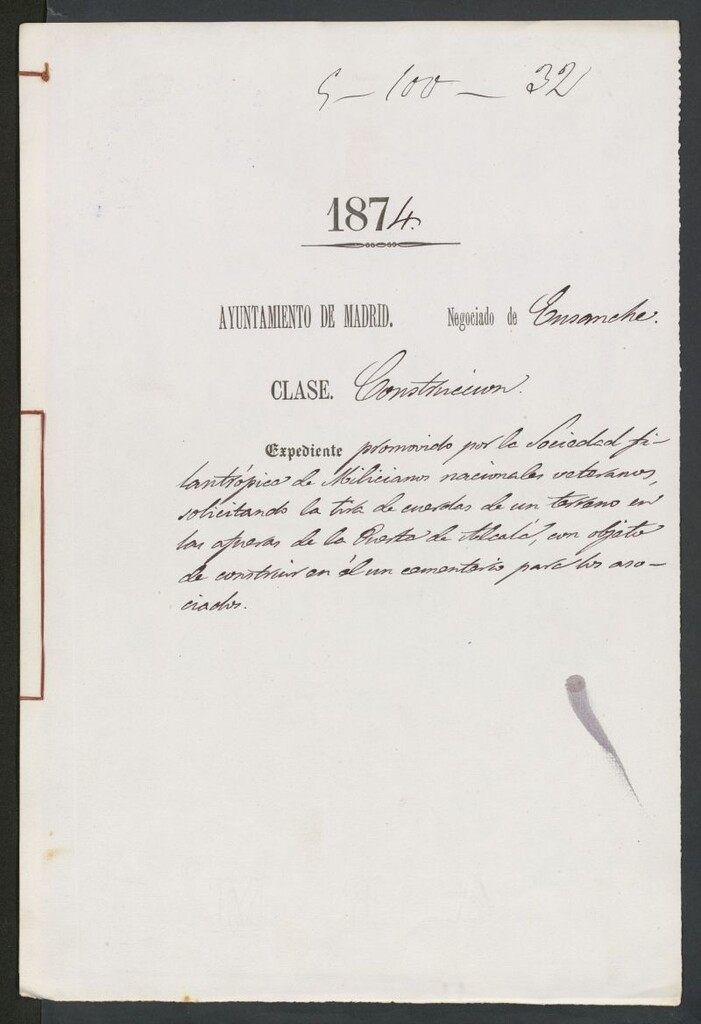 5 - 100 - 32
1874.
AYUNTAMIENTO DE MADRID. Negociado de Ensanche.
CLASE. Construccion.
Expediente promovido por la Sociedad fi-
lantrópica de Milicianos nacionales veteranos,
solicitando la tira de cuerdas de un terreno en
las afueras de la Puerta de Alcalá, con objeto
de construir en él un cementerio para los aso-
ciados.